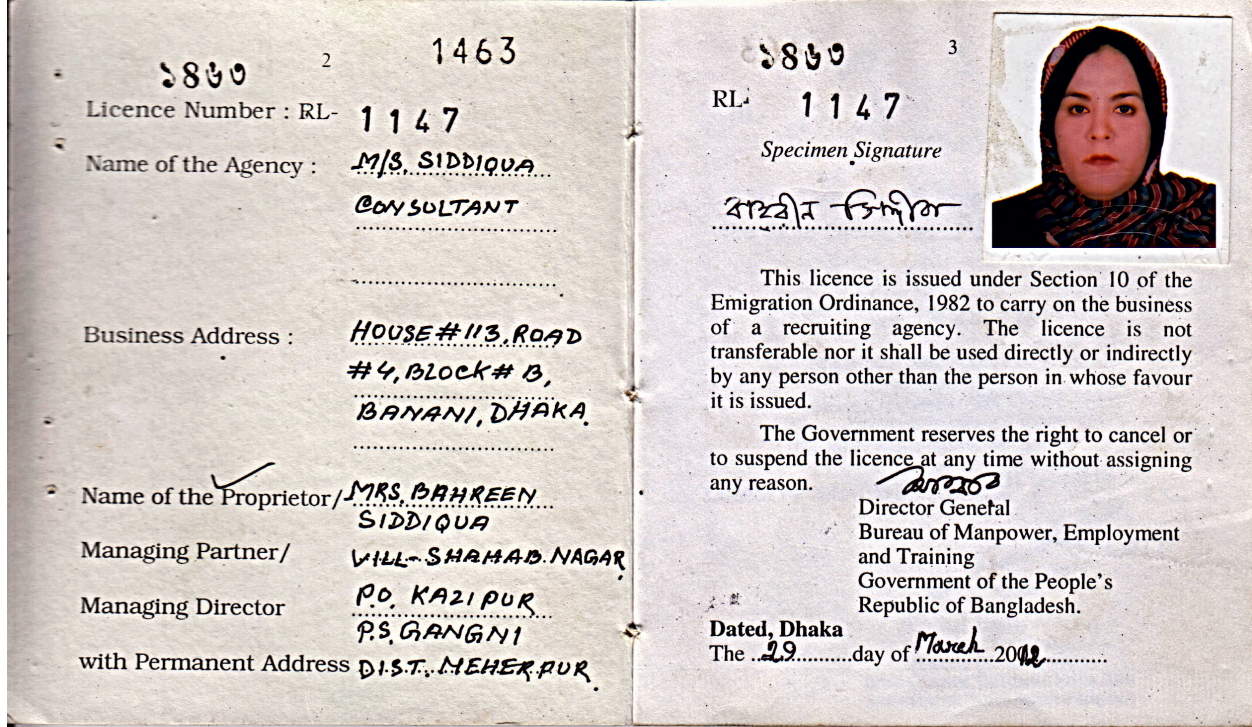 2
1463
১৪৬৩
Licence Number : RL- 1147
Name of the Agency : M/S, SIDDIQUA
CONSULTANT
Business Address : HOUSE # 113, ROAD
# 4, BLOCK # B,
BANANI, DHAKA.
Name of the Proprietor/ MRS. BAHREEN
SIDDIQUA
Managing Partner/ VILL-SHAHAB NAGAR
Managing Director P.O. KAZIPUR
P.S. GANGNI
with Permanent Address DIST. MEHERPUR.
১৪৬৩
3
RL- 1147
Specimen Signature
বাহরীন সিদ্দীকা
This licence is issued under Section 10 of the
Emigration Ordinance, 1982 to carry on the business
of a recruiting agency. The licence is not
transferable nor it shall be used directly or indirectly
by any person other than the person in whose favour
it is issued.
The Government reserves the right to cancel or
to suspend the licence at any time without assigning
any reason.
Director General
Bureau of Manpower, Employment
and Training
Government of the People's
Republic of Bangladesh.
Dated, Dhaka
The 29 day of March 2012